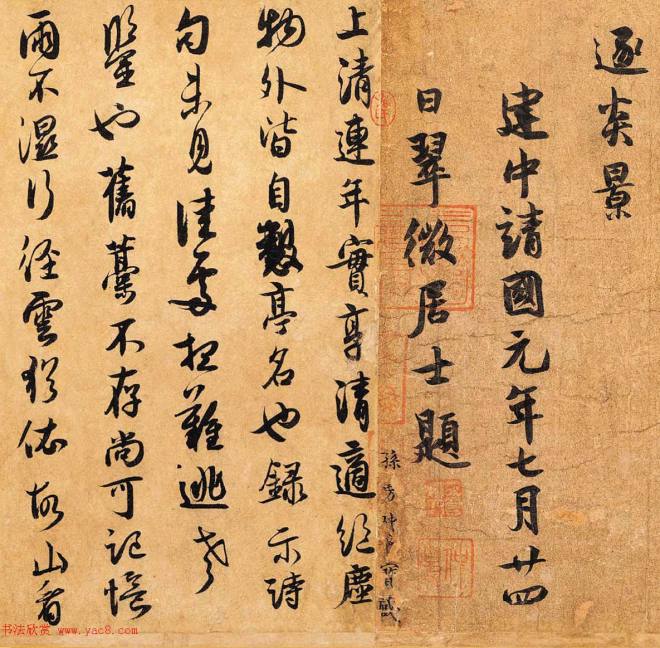 逐炎景
建中靖國元年七月廿四
日翠微居士題
上清連年實享清適絕塵
物外皆自懃亭名也錄示詩
句未見佳處但難逃老
鑒也舊藁不存尚可記憶
雨不濕行徑雲移依故山看
書法欣赏 www.yac8.com